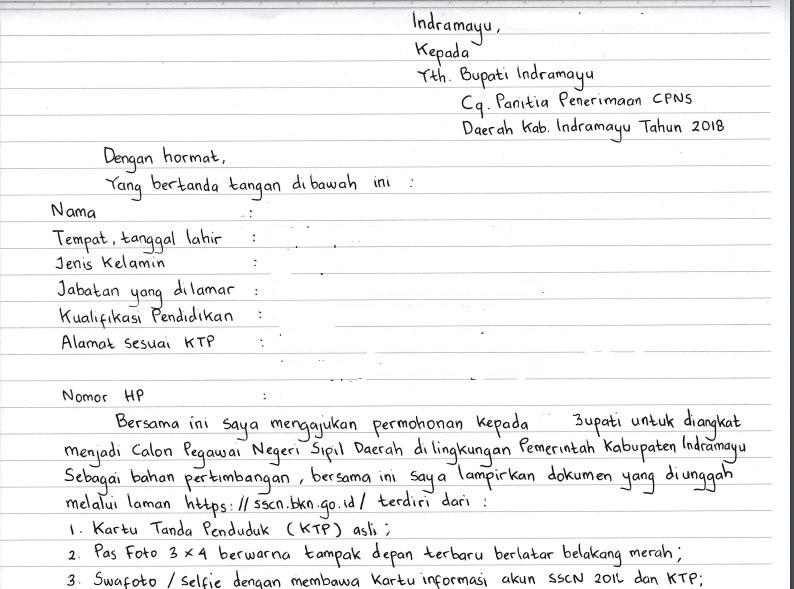 Indramayu,
Kepada
Yth. Bupati Indramayu
Cq. Panitia Penerimaan CPNS
Daerah Kab. Indramayu Tahun 2018
Dengan hormat,
Yang bertanda tangan dibawah ini :
Nama :
Tempat, tanggal lahir :
Jenis Kelamin :
Jabatan yang dilamar :
Kualifikasi Pendidikan :
Alamat sesuai KTP :
Nomor HP :
Bersama ini saya mengajukan permohonan kepada Bupati untuk diangkat
menjadi Calon Pegawai Negeri Sipil Daerah di lingkungan Pemerintah Kabupaten Indramayu
Sebagai bahan pertimbangan, bersama ini saya lampirkan dokumen yang diunggah
melalui laman https://sscn.bkn.go.id/ terdiri dari :
1. Kartu Tanda Penduduk (KTP) asli;
2. Pas Foto 3 x 4 berwarna tampak depan terbaru berlatar belakang merah;
3. Swafoto / selfie dengan membawa kartu informasi akun SSCN dan KTP;